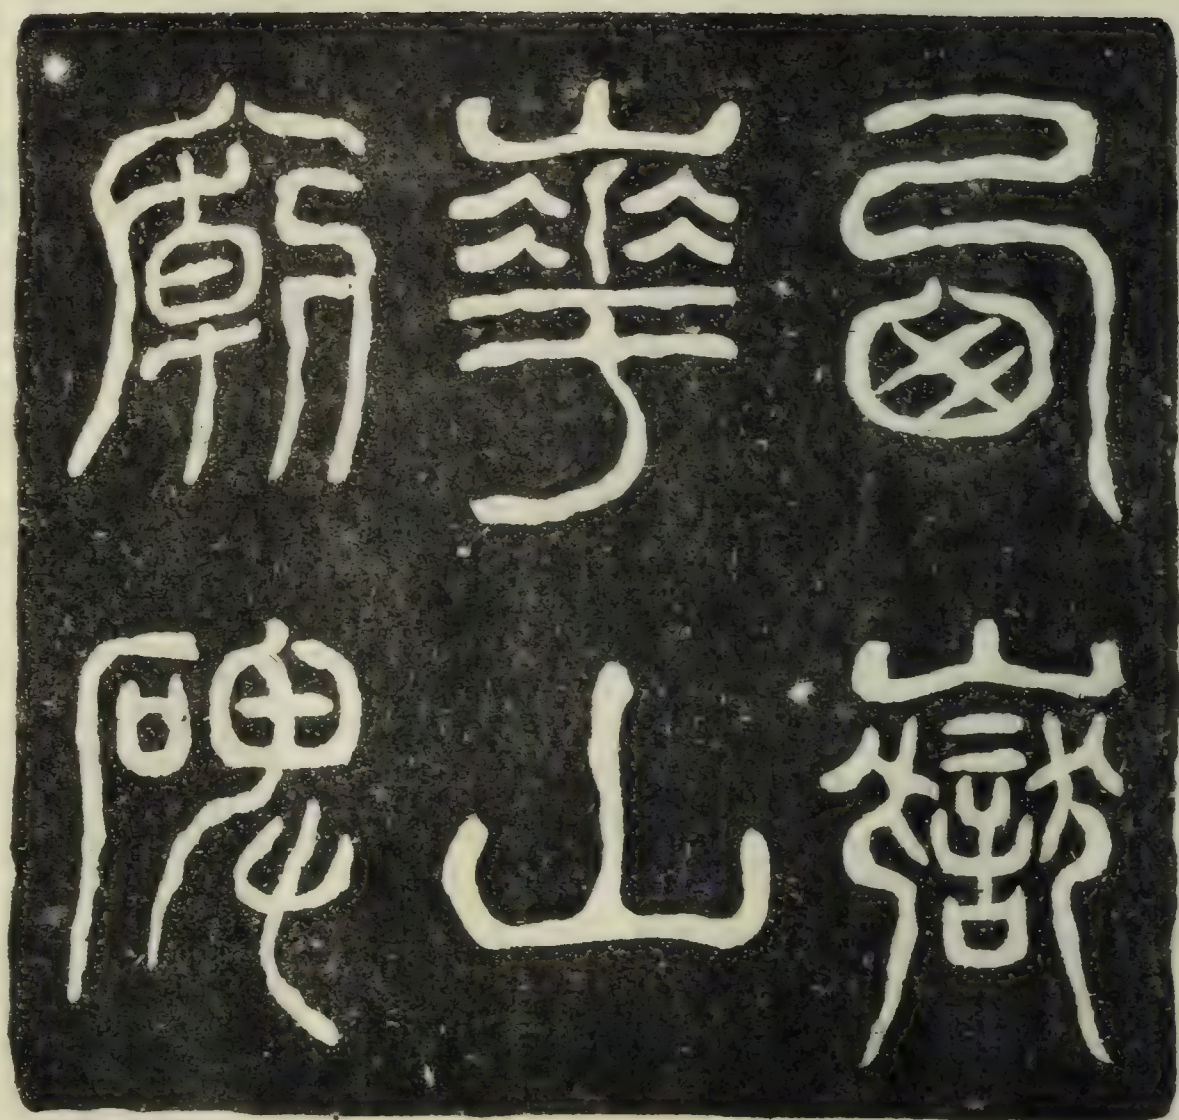 西嶽
華山
廟碑